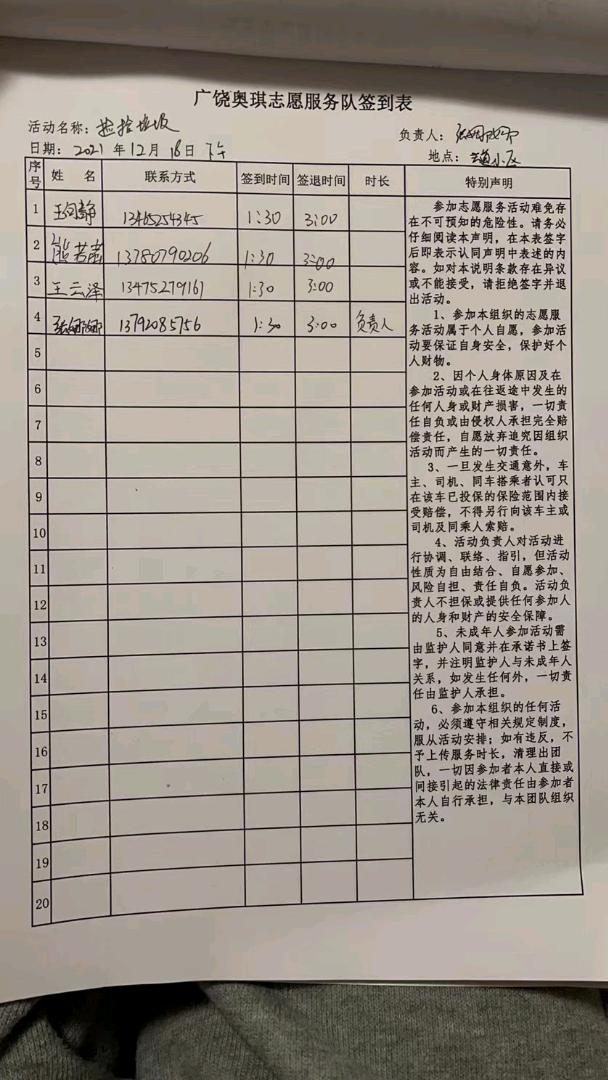 广饶奥琪志愿服务队签到表
活动名称：捡拾垃圾
负责人：
日期：2021年12月18日下午
地点：小区
序号 姓 名 联系方式 签到时间 签退时间 时长 特别声明
1 13465254345 1:30 3:00
2 若南 13780790206 1:30 3:00
3 王云泽 13475279161 1:30 3:00
4 13792085756 1:30 3:00 负责人
5
6
7
8
9
10
11
12
13
14
15
16
17
18
19
20
参加志愿服务活动难免存
在不可预知的危险性。请务必
仔细阅读本声明，在本表签字
后即表示认同声明中表述的内
容。如对本说明条款存在异议
或不能接受，请拒绝签字并退
出活动。
1、参加本组织的志愿服
务活动属于个人自愿，参加活
动要保证自身安全，保护好个
人财物。
2、因个人身体原因及在
参加活动或在往返途中发生的
任何人身或财产损害，一切责
任自负或由侵权人承担完全赔
偿责任，自愿放弃追究因组织
活动而产生的一切责任。
3、一旦发生交通意外，车
主、司机、同车搭乘者认可只
在该车已投保的保险范围内接
受赔偿，不得另行向该车主或
司机及同乘人索赔。
4、活动负责人对活动进
行协调、联络、指引，但活动
性质为自由结合、自愿参加、
风险自担、责任自负。活动负
责人不担保或提供任何参加人
的人身和财产的安全保障。
5、未成年人参加活动需
由监护人同意并在承诺书上签
字，并注明监护人与未成年人
关系，如发生任何外，一切责
任由监护人承担。
6、参加本组织的任何活
动，必须遵守相关规定制度，
服从活动安排；如有违反，不
予上传服务时长，清理出团
队，一切因参加者本人直接或
间接引起的法律责任由参加者
本人自行承担，与本团队组织
无关。